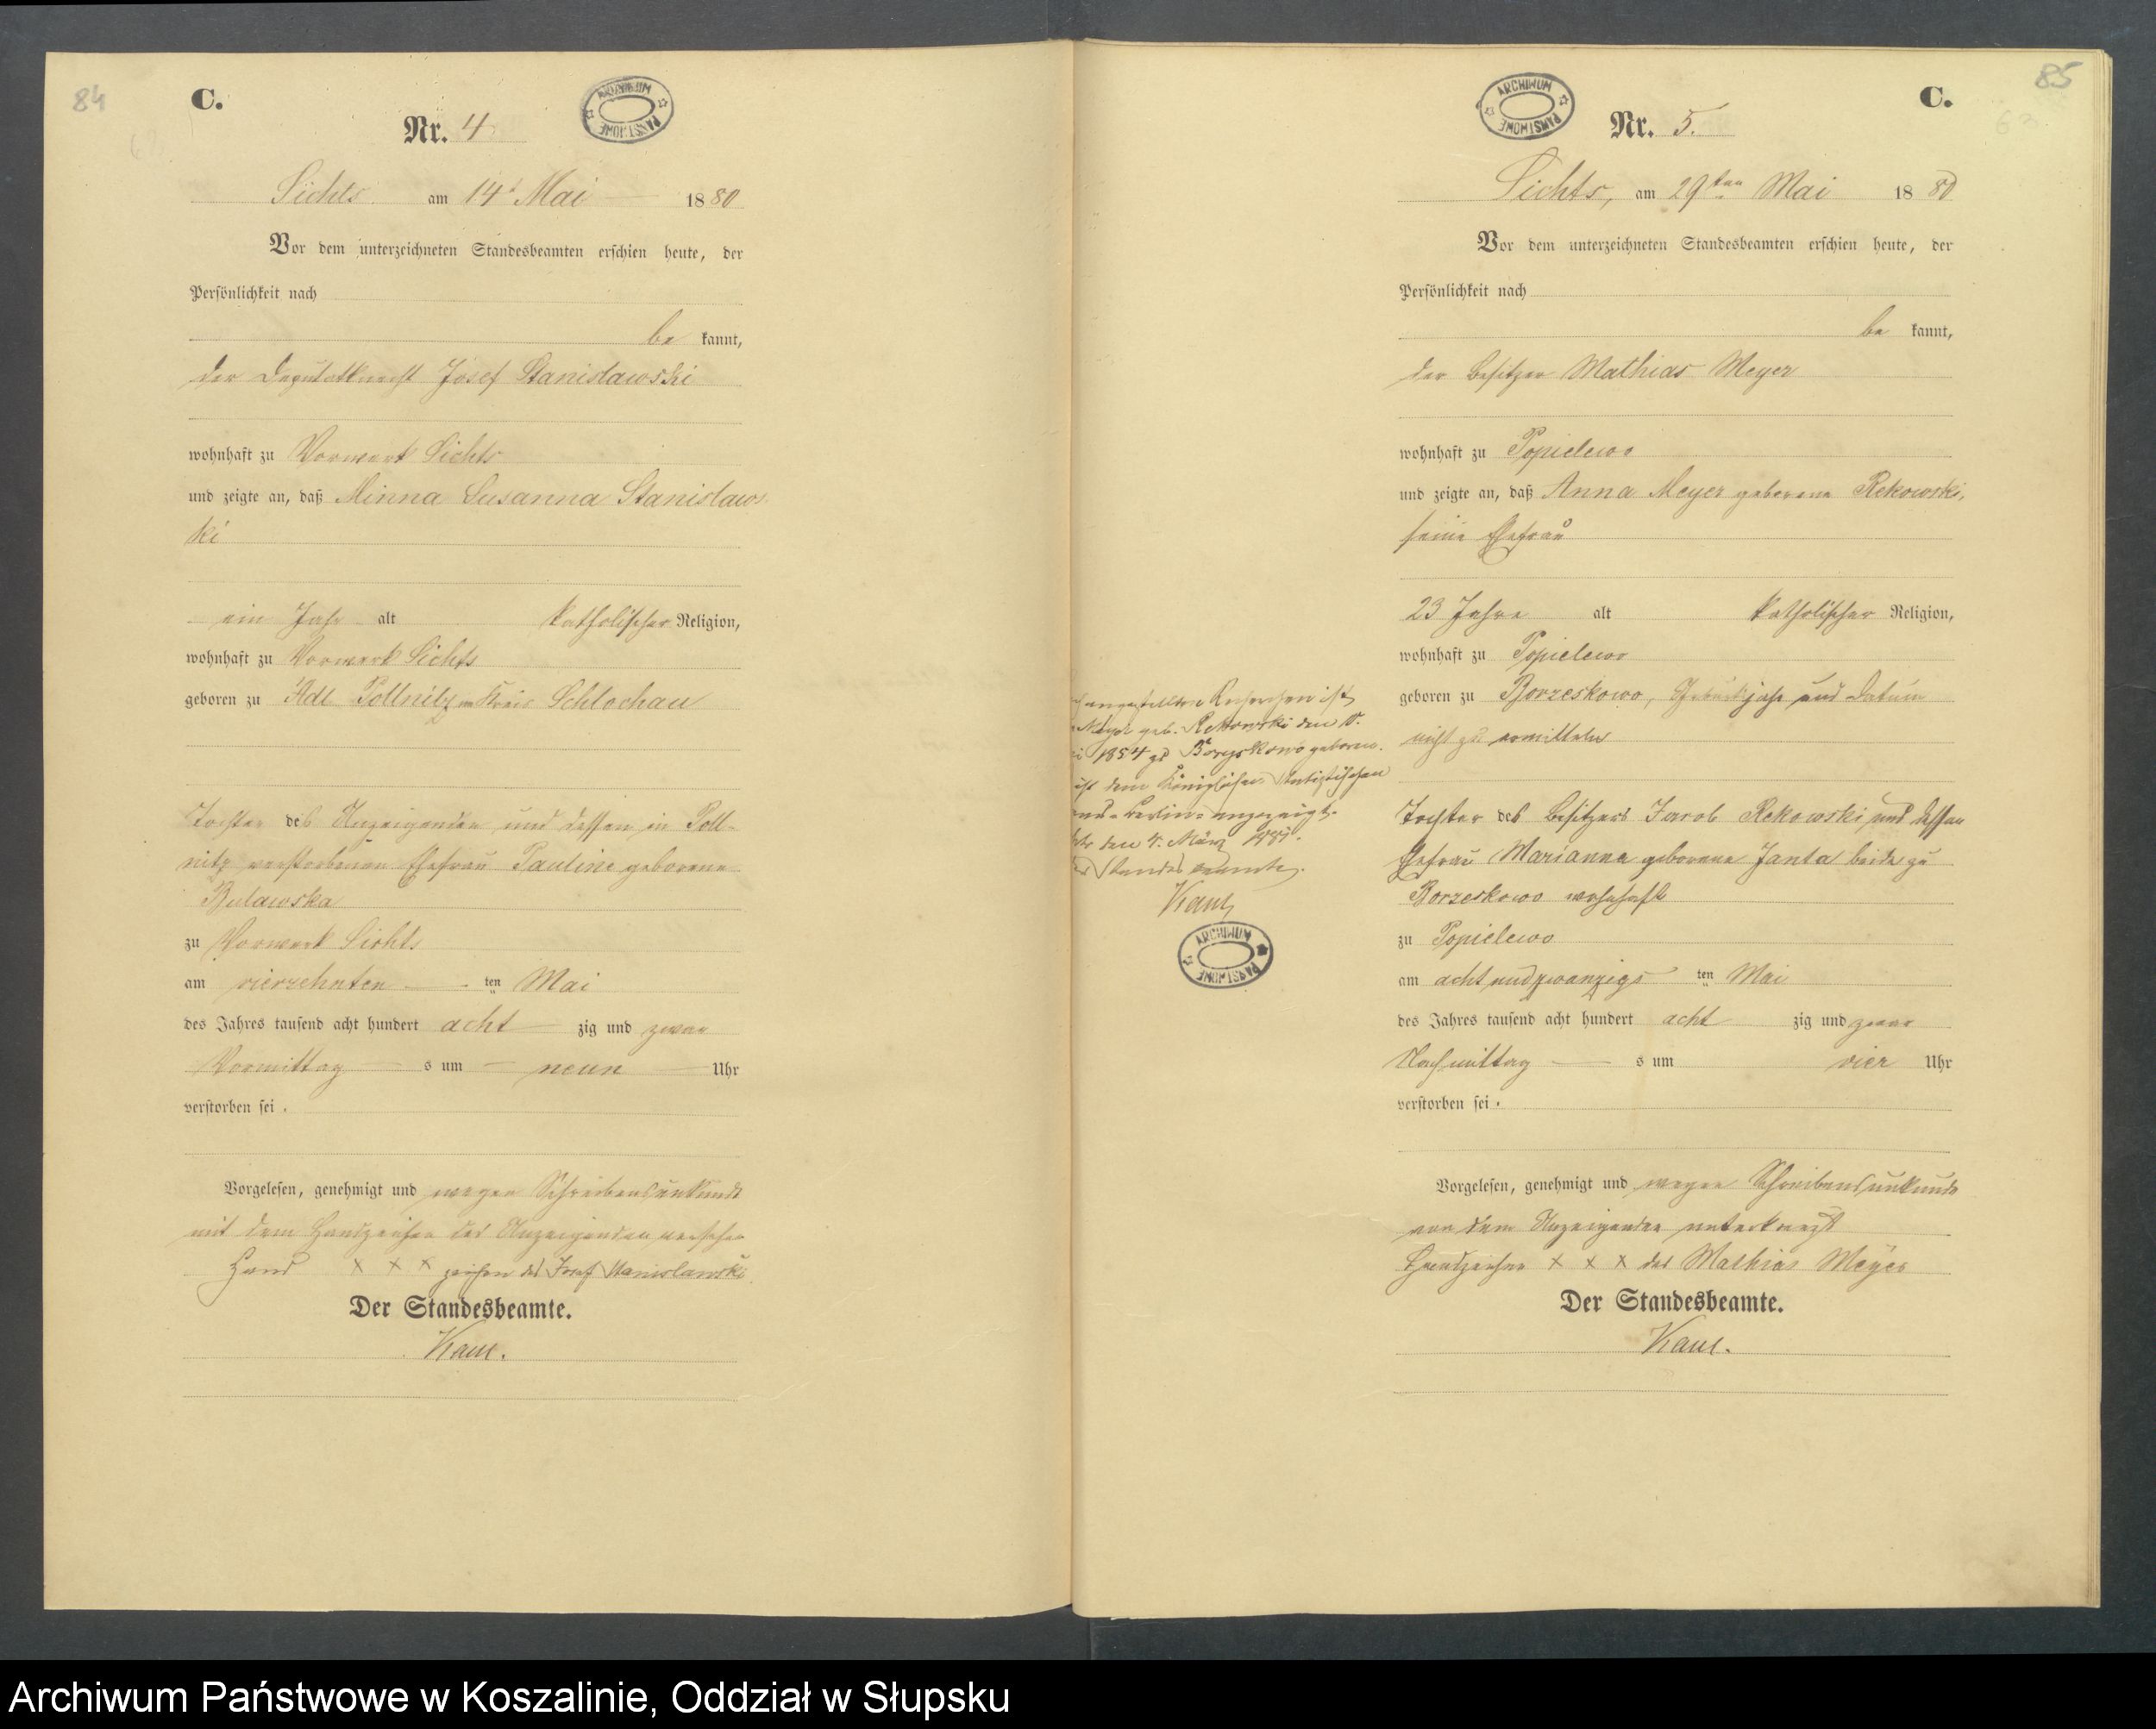 84
C.
ARCHIWUM PAŃSTWOWE
Nr. 4
Sichts am 14t Mai 1880
Vor dem unterzeichneten Standesbeamten erschien heute, der
Persönlichkeit nach
be kannt,
der Deputatknecht Josef Stanislawski
wohnhaft zu Vorwerk Sichts
und zeigte an, daß Minna Susanna Stanislaws
ki
ein Jahr alt katholischer Religion,
wohnhaft zu Vorwerk Sichts
geboren zu Adl. Pollnitz im Kreis Schlochau
Tochter des Anzeigenden und dessen in Poll-
nitz verstorbenen Ehefrau Pauline geborene
Bulawska
zu Vorwerk Sichts
am vierzehnten ten Mai
des Jahres tausend acht hundert acht zig und zwar
Vormittag s um neun Uhr
verstorben sei.
Vorgelesen, genehmigt und wegen Schreibensunkunde
mit dem Handzeichen des Anzeigenden versehen
Hand x x x zeichen des Josef Stanislawski
Der Standesbeamte.
85
C.
ARCHIWUM PAŃSTWOWE
Nr. 5.
Sichts, am 29ten Mai 1880
Vor dem unterzeichneten Standesbeamten erschien heute, der
Persönlichkeit nach
be kannt,
der Besitzer Mathias Meyer
wohnhaft zu Popielewo
und zeigte an, daß Anna Meyer geborene Rekowski,
seine Ehefrau
23 Jahre alt katholischer Religion,
wohnhaft zu Popielewo
geboren zu Borzeskowo, Geburtsjahr und Datum
nicht zu ermitteln
Tochter des Besitzers Jacob Rekowski und dessen
Ehefrau Marianna geborene Janta beide zu
Borzeskowo wohnhaft
zu Popielewo
am acht und zwanzigs ten Mai
des Jahres tausend acht hundert acht zig und zwar
Nachmittag s um vier Uhr
verstorben sei.
Vorgelesen, genehmigt und wegen Schreibensunkunde
von dem Anzeigenden unterkreuzt
Handzeichen x x x des Mathias Meyer
Der Standesbeamte.
angestellten Recherchen ist
Meyer geb. Rekowski den
1854 zu Borzyskowo geboren.
dem Königlichen Statistischen
Berlin angezeigt.
den 4. März 1881.
Standesbeamte.
ARCHIWUM PAŃSTWOWE
Archiwum Państwowe w Koszalinie, Oddział w Słupsku